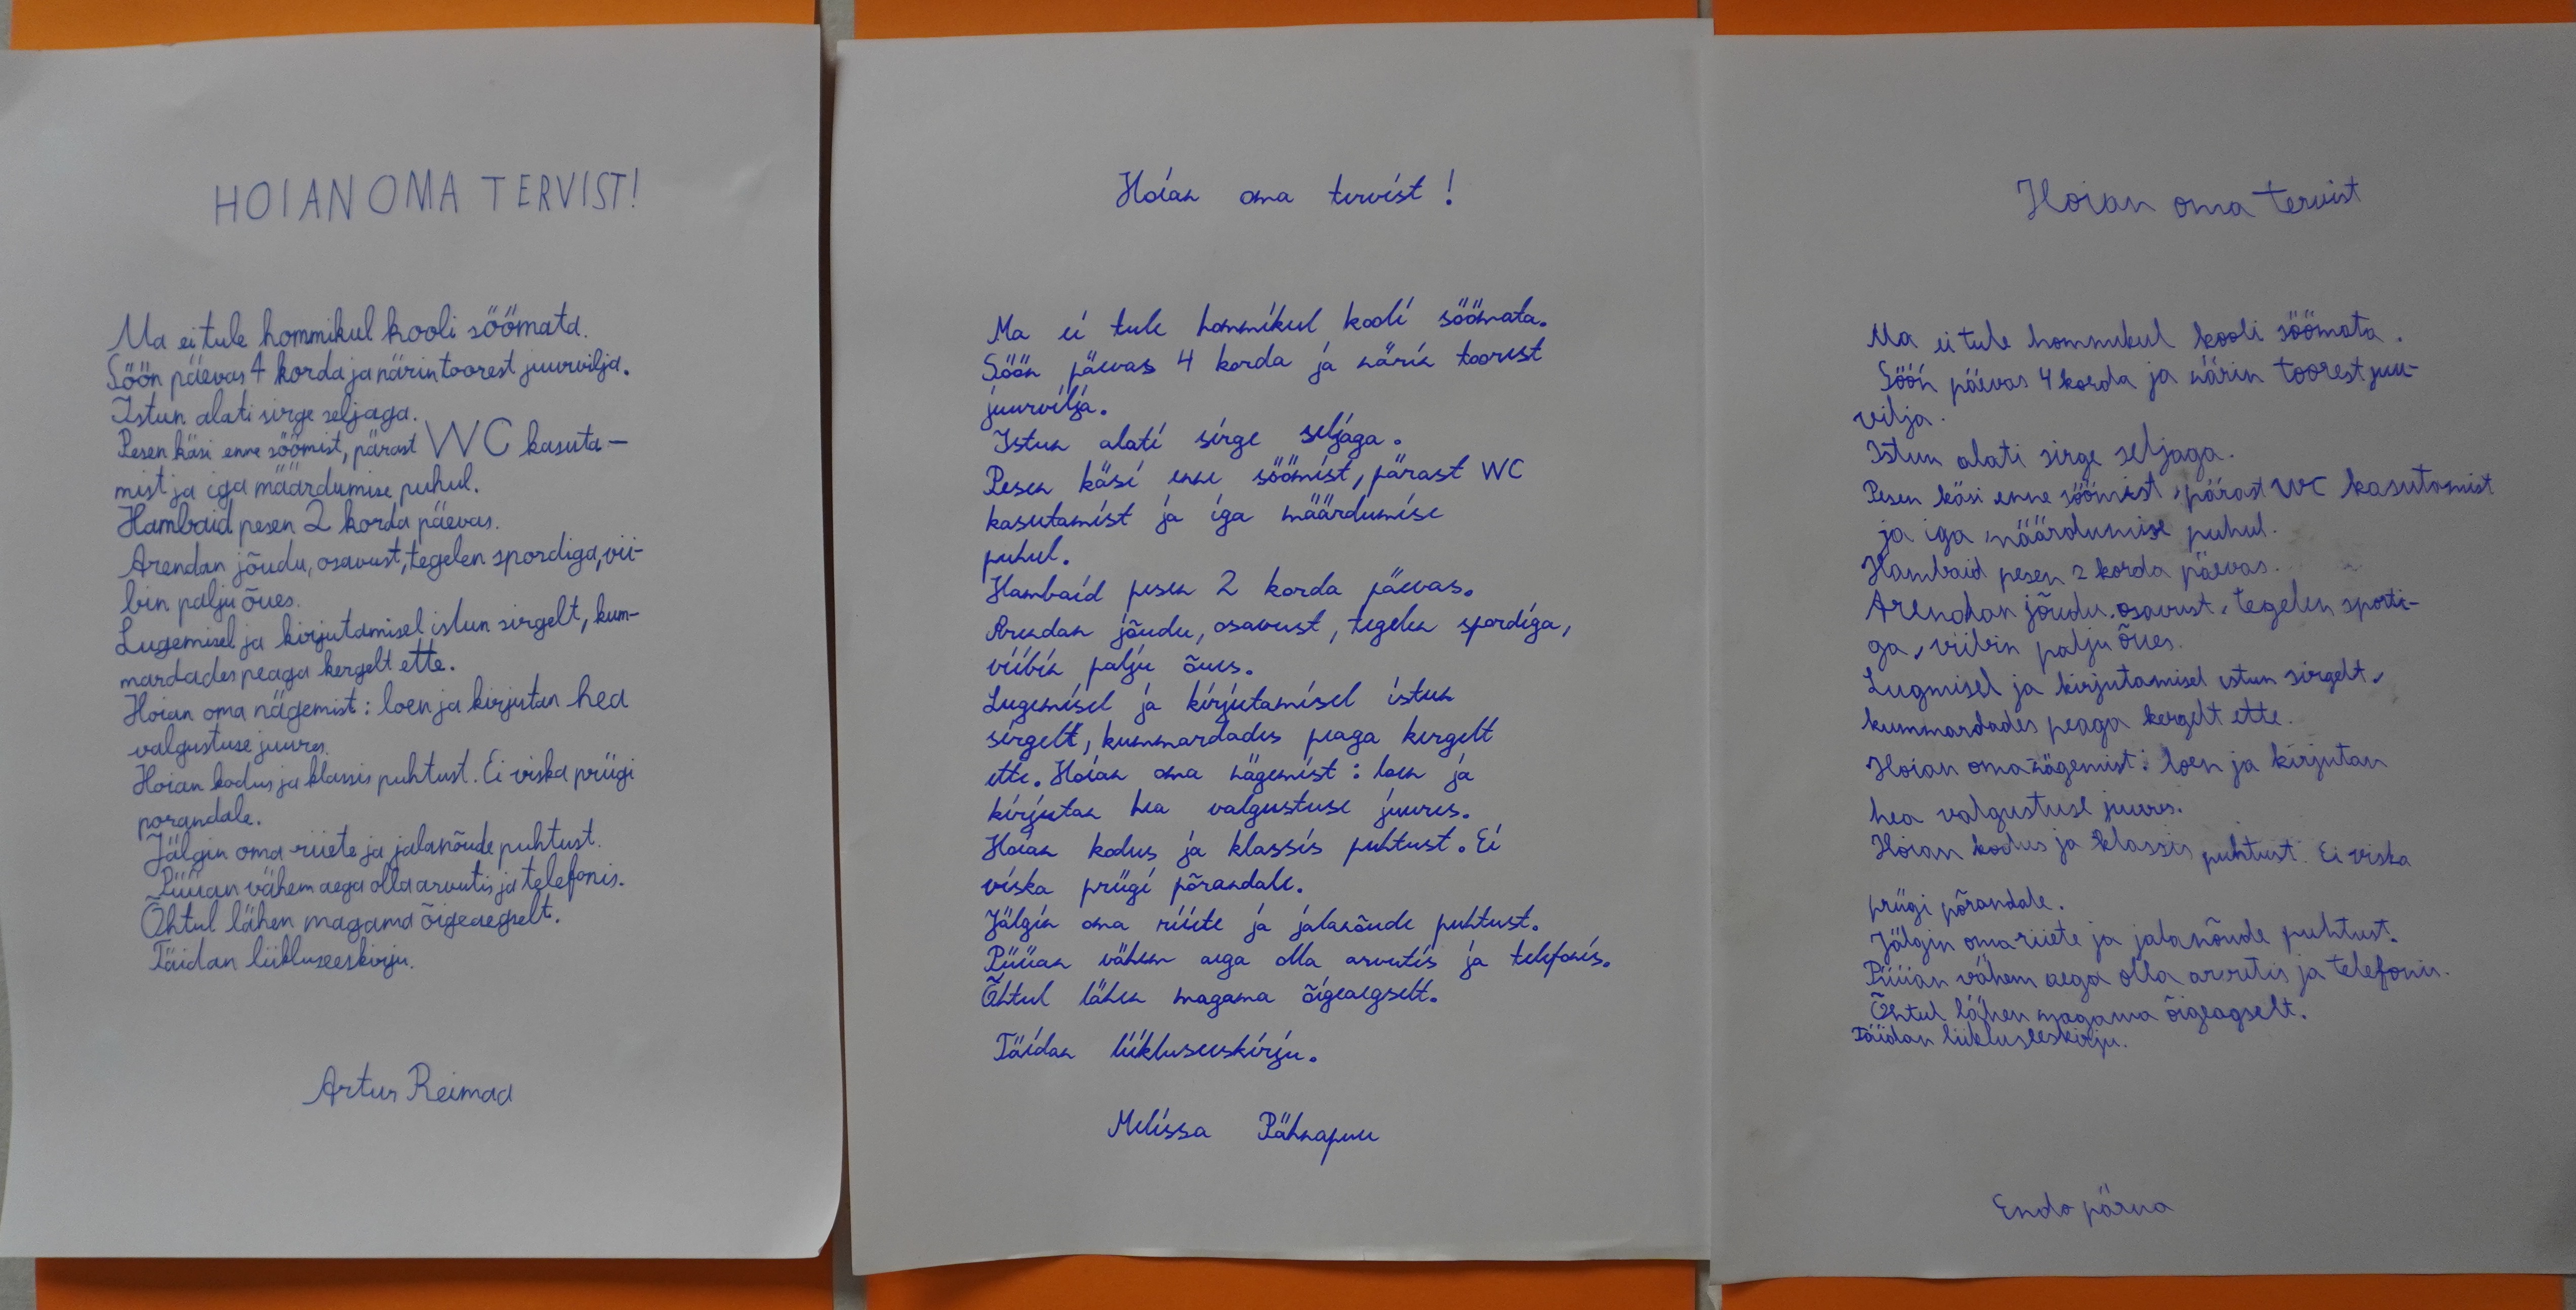 HOIAN OMA TERVIST!
Ma ei tule hommikul kooli söömata.
Söön päevas 4 korda ja närin toorest juurvilja.
Istun alati sirge seljaga.
Pesen käsi enne söömist, pärast WC kasuta-
mist ja iga määrdumise puhul.
Hambaid pesen 2 korda päevas.
Arendan jõudu, osavust, tegelen spordiga, vii-
bin palju õues.
Lugemisel ja kirjutamisel istun sirgelt, kum-
mardades peaga kergelt ette.
Hoian oma nägemist: loen ja kirjutan hea
valgustuse juures.
Hoian kodus ja klassis puhtust. Ei viska prügi
porandale.
Jälgin oma riiete ja jalanõude puhtust.
Püüan vähem aega olla arvutis ja telefonis.
Õhtul lähen magama õigeaegselt.
Täidan liikluseeskirju.
Artur Reimad
Hoian oma tervist!
Ma ei tule hommikul kooli söömata.
Söön päevas 4 korda ja närin toorest
juurvilja.
Istun alati sirge seljaga.
Pesen käsi enne söömist, pärast WC
kasutamist ja iga määrdumise
puhul.
Hambaid pesen 2 korda päevas.
Arendan jõudu, osavust, tegelen spordiga,
viibin palju õues.
Lugemisel ja kirjutamisel istun
sirgelt, kummardades peaga kergelt
ette. Hoian oma nägemist: loen ja
kirjutan hea valgustuse juures.
Hoian kodus ja klassis puhtust. Ei
viska prügi põrandale.
Jälgin oma riiete ja jalanõude puhtust.
Püüan vähem aega olla arvutis ja telefonis.
Õhtul lähen magama õigeaegselt.
Täidan liikluseeskirju.
Melissa Pähnapuu
Hoian oma tervist
Ma ei tule hommikul kooli söömata.
Söön päevas 4 korda ja närin toorest juu-
vilja.
Istun alati sirge seljaga.
Pesen käsi enne söömist, pärast WC kasutamist
ja iga määrdumise puhul.
Hambaid pesen 2 korda päevas.
Arendan jõudu, osavust, tegelen sporti-
ga, viibin palju õues.
Lugmisel ja kirjutamisel istun sirgelt,
kummardades peaga kergelt ette.
Hoian oma nägemist: loen ja kirjutan
hea valgustuse juures.
Hoian kodus ja klassis puhtust. Ei viska
prügi põrandale.
Jälgin oma riiete ja jalanõude puhtust.
Püüan vähem aega olla arvutis ja telefonis.
Õhtul lähen magama õigeagselt.
Täidan liikluseeskirju.
Endo pärna